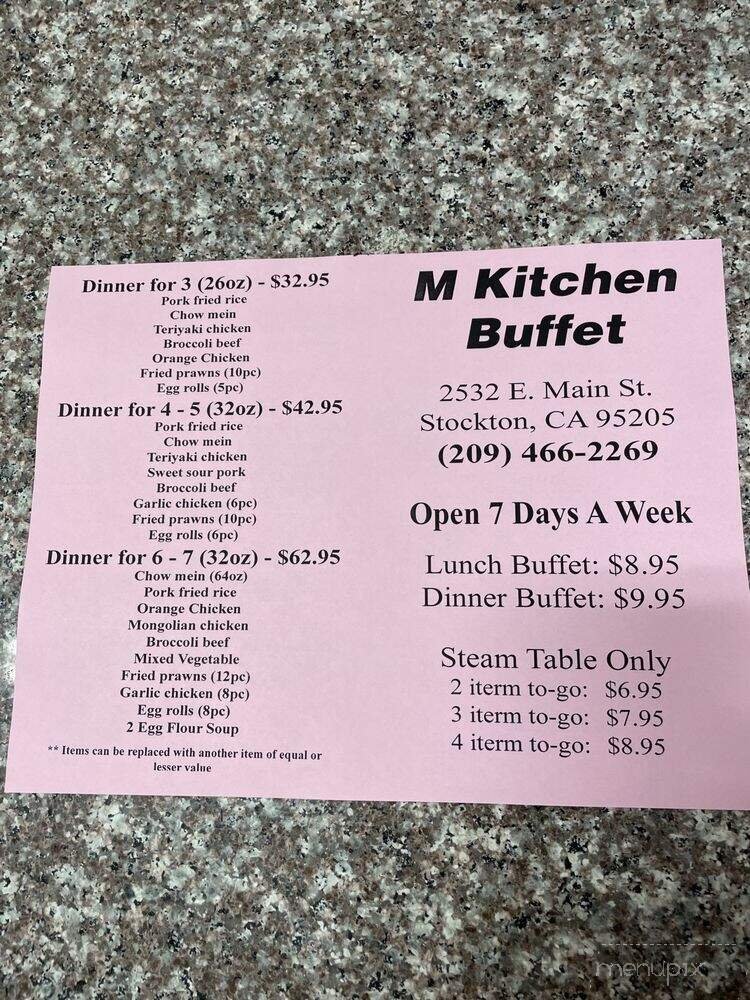 Dinner for 3 (26oz) - $32.95
Pork fried rice
Chow mein
Teriyaki chicken
Broccoli beef
Orange Chicken
Fried prawns (10pc)
Egg rolls (5pc)
Dinner for 4 - 5 (32oz) - $42.95
Pork fried rice
Chow mein
Teriyaki chicken
Sweet sour pork
Broccoli beef
Garlic chicken (6pc)
Fried prawns (10pc)
Egg rolls (6pc)
Dinner for 6 - 7 (32oz) - $62.95
Chow mein (64oz)
Pork fried rice
Orange Chicken
Mongolian chicken
Broccoli beef
Mixed Vegetable
Fried prawns (12pc)
Garlic chicken (8pc)
Egg rolls (8pc)
2 Egg Flour Soup
** Items can be replaced with another item of equal or
lesser value
M Kitchen
Buffet
2532 E. Main St.
Stockton, CA 95205
(209) 466-2269
Open 7 Days A Week
Lunch Buffet: $8.95
Dinner Buffet: $9.95
Steam Table Only
2 iterm to-go: $6.95
3 iterm to-go: $7.95
4 iterm to-go: $8.95
menupix